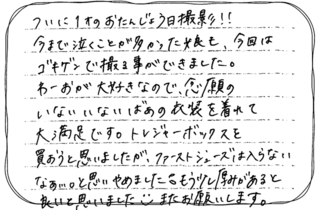 ついに1才のおたんじょう日撮影!!
今まで泣くことが多かった娘も、今回は
ゴキゲンで撮る事ができました。
わーおが大好きなので、念願の
いないいないばあの衣装を着れて
大満足です。トレジャーボックスを
買おうと思いましたが、ファーストシューズは入らない
なぁ…。と思いやめました もう少し厚みがあると
良いと思いました またお願いします。